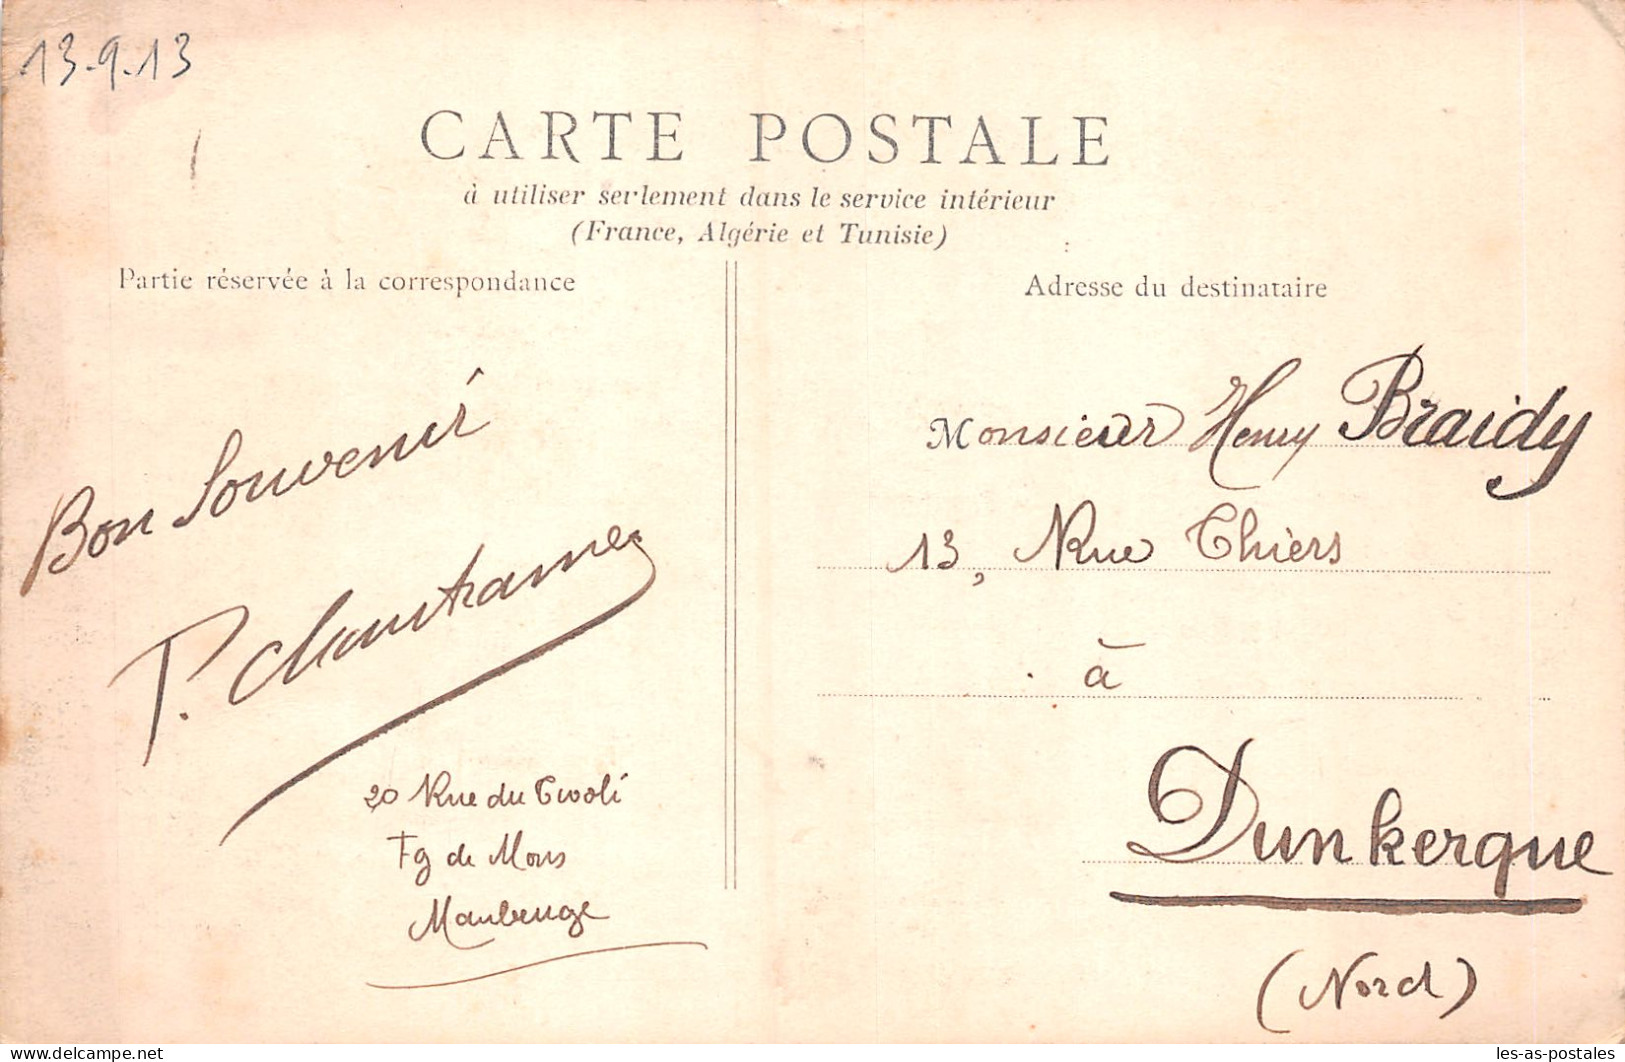 13.9.13
CARTE POSTALE
à utiliser seulement dans le service intérieur
(France, Algérie et Tunisie)
Partie réservée à la correspondance
Adresse du destinataire
Bon Souvenir
P.
20 Rue du Tivoli
Fg de Mons
Maubeuge
Monsieur Henry Braidy
13, Rue Thiers
à
Dunkerque
(Nord)
les-as-postales